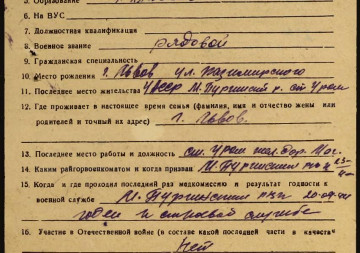 5. Образование
6. На ВУС
7. Должностная квалификация
8. Военное звание рядовой
9. Гражданская специальность
10. Место рождения г. Львов ул. Казимирского
11. Последнее место жительства УССР М. Пургинский р. ст Уром
12. Где проживает в настоящее время семья (фамилия, имя и отчество жены или
родителей и точный их адрес) г. Львов.
13. Последнее место работы и должность ст. Уром
14. Каким райгорвоенкоматом и когда призван М. Пургинским РВК
15. Когда и где проходил последний раз медкомиссию и результат годности к
военной службе М. Пургинским РВК
годен к строевой службе
16. Участие в Отечественной войне (в составе какой последней части в качестве
Нет